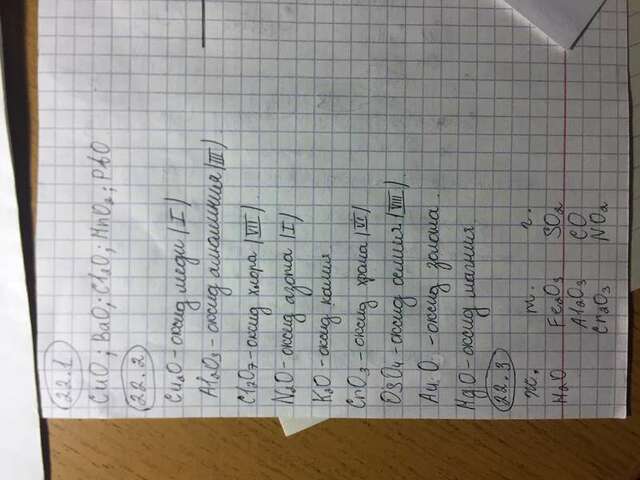 22.1
CuO; BaO; Cl2O; MnO2; PbO
22.2
Cu2O - оксид меди (I)
Al2O3 - оксид алюминия (III)
Cl2O7 - оксид хлора (VII)
N2O - оксид азота (I)
K2O - оксид калия
CrO3 - оксид хрома (VI)
OsO4 - оксид осмия (VIII)
Au O - оксид золота
MgO - оксид магния
22.3
ж. т. г.
H2O Fe2O3 SO2
Al2O3 CO
Cr2O3 NO2